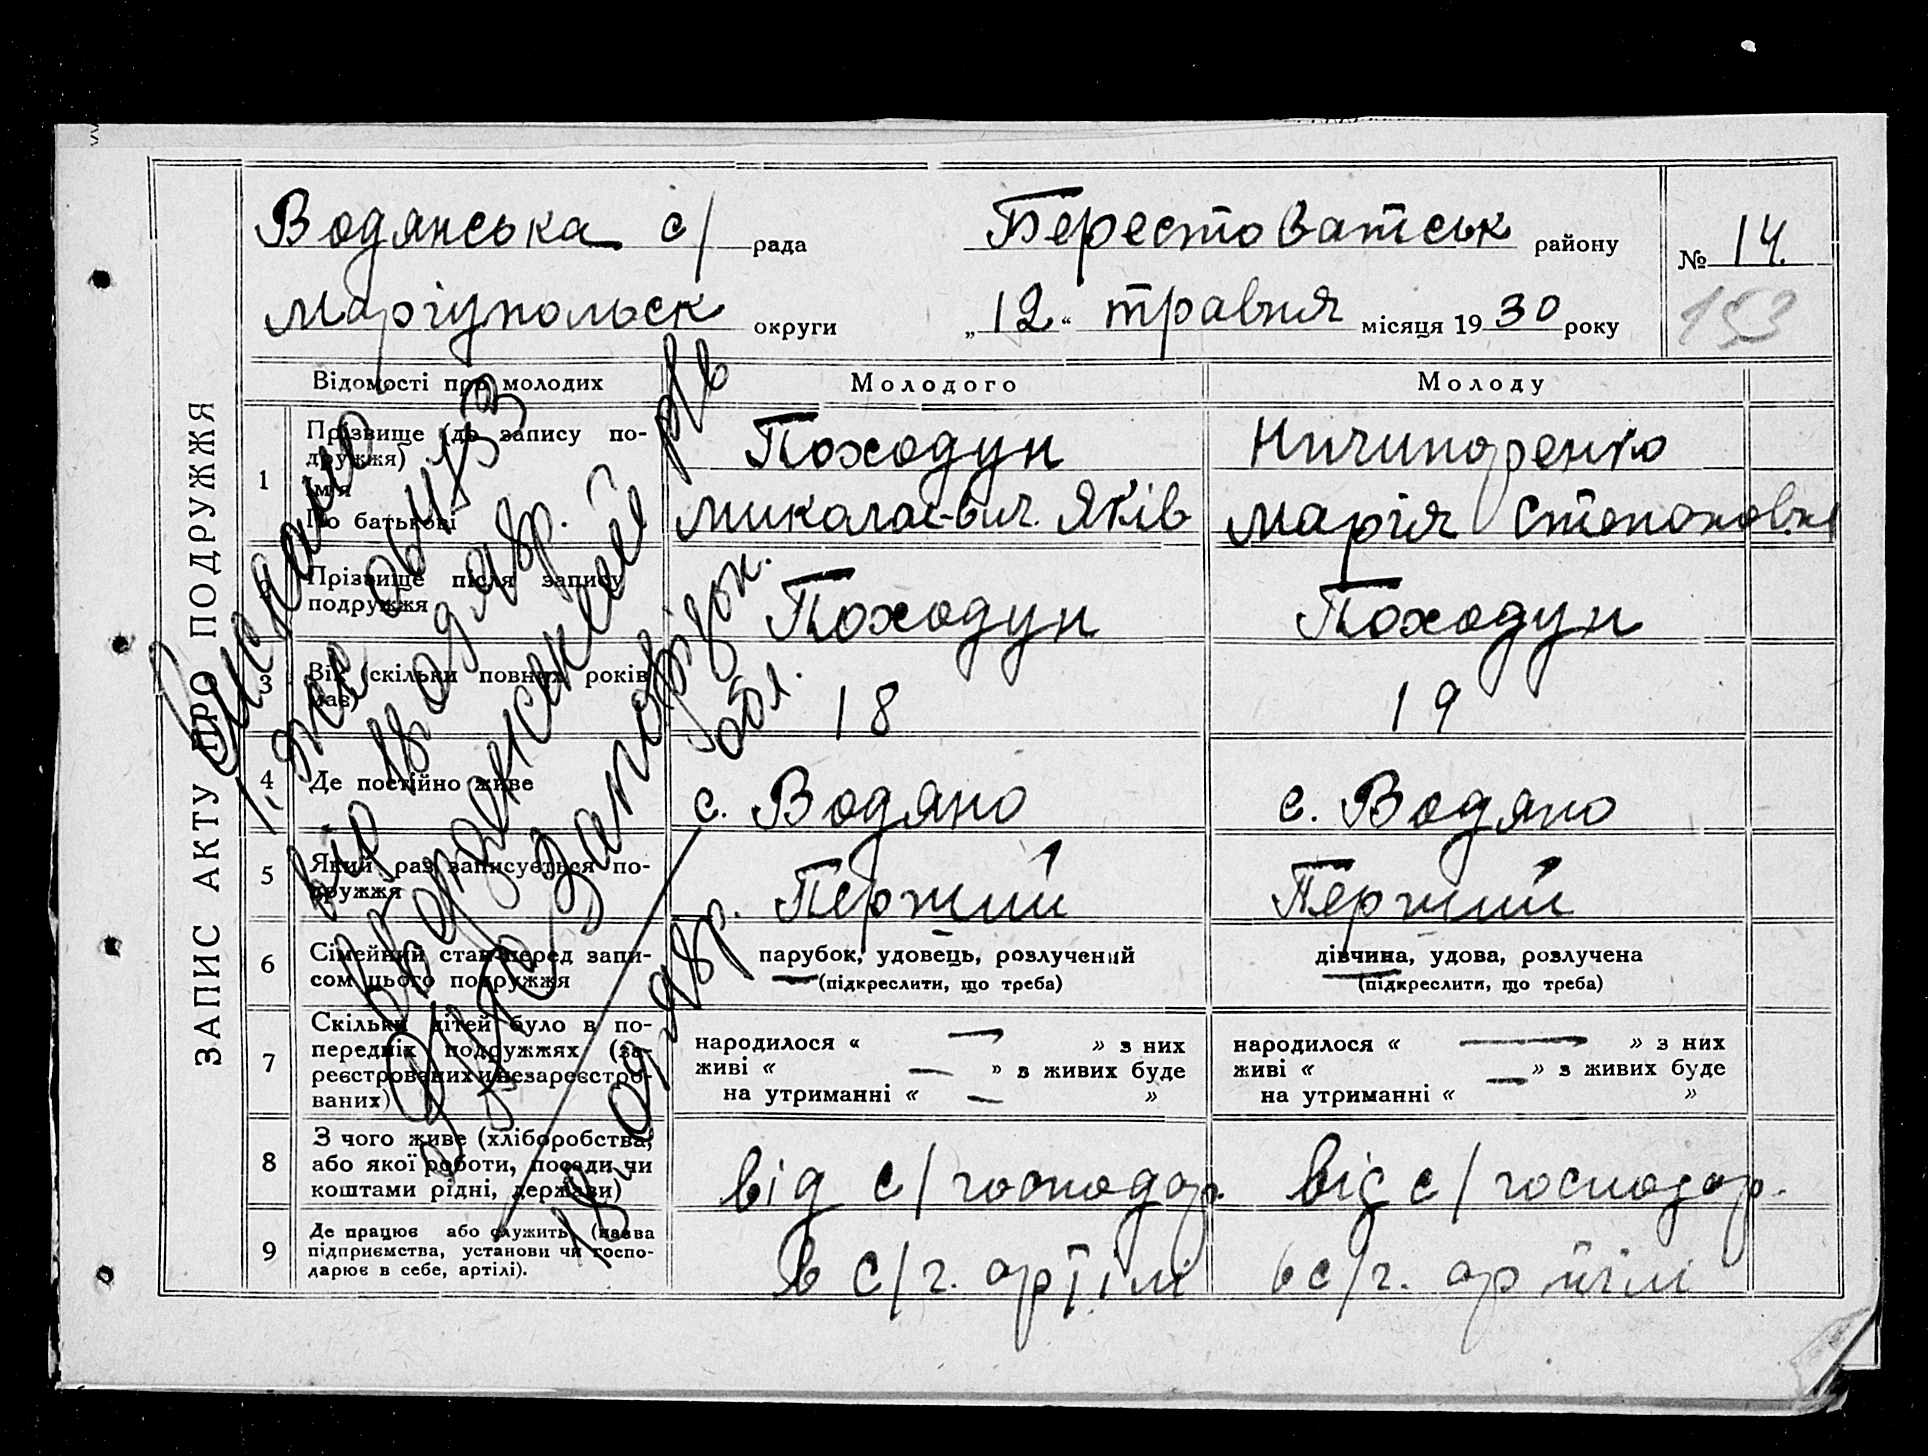 ЗАПИС АКТУ ПРО ПОДРУЖЖЯ
Водянська с/ рада Берестоватськ району № 14.
Маріупольск округи „12“ травня місяця 1930 року 153
Відомості про молодих Молодого Молоду
1 Прізвище (до запису по-
дружжя) Походун Ничипоренко
Ім'я
По батькові Миколаєвич. Яків Марія Степоновна
2 Прізвище після запису
подружжя Походун Походун
3 Вік (скільки повних років
має) 18 19
4 Де постійно живе с. Водяно с. Водяно
5 Який раз записується по-
дружжя Перший Перший
6 Сімейний стан перед запи-
сом цього подружжя
парубок, удовець, розлучений
(підкреслити, що треба)
дівчина, удова, розлучена
(підкреслити, що треба)
7 Скільки дітей було в по-
передніх подружжях (за-
реєстрованих и незареєстро-
ваних)
народилося « — » з них
живі « — » з живих буде
на утриманні « — »
народилося « — » з них
живі « — » з живих буде
на утриманні « »
8 З чого живе (хліборобства,
або якої роботи, посади чи
коштами рідні, держави)
від с/господар. від с/господар.
9 Де працює або служить (назва
підприємства, установи чи госпо-
дарює в себе, артілі).
в с/г. артілі в с/г. артілі
Видано
від 18
Запорізьк.
обл.
18